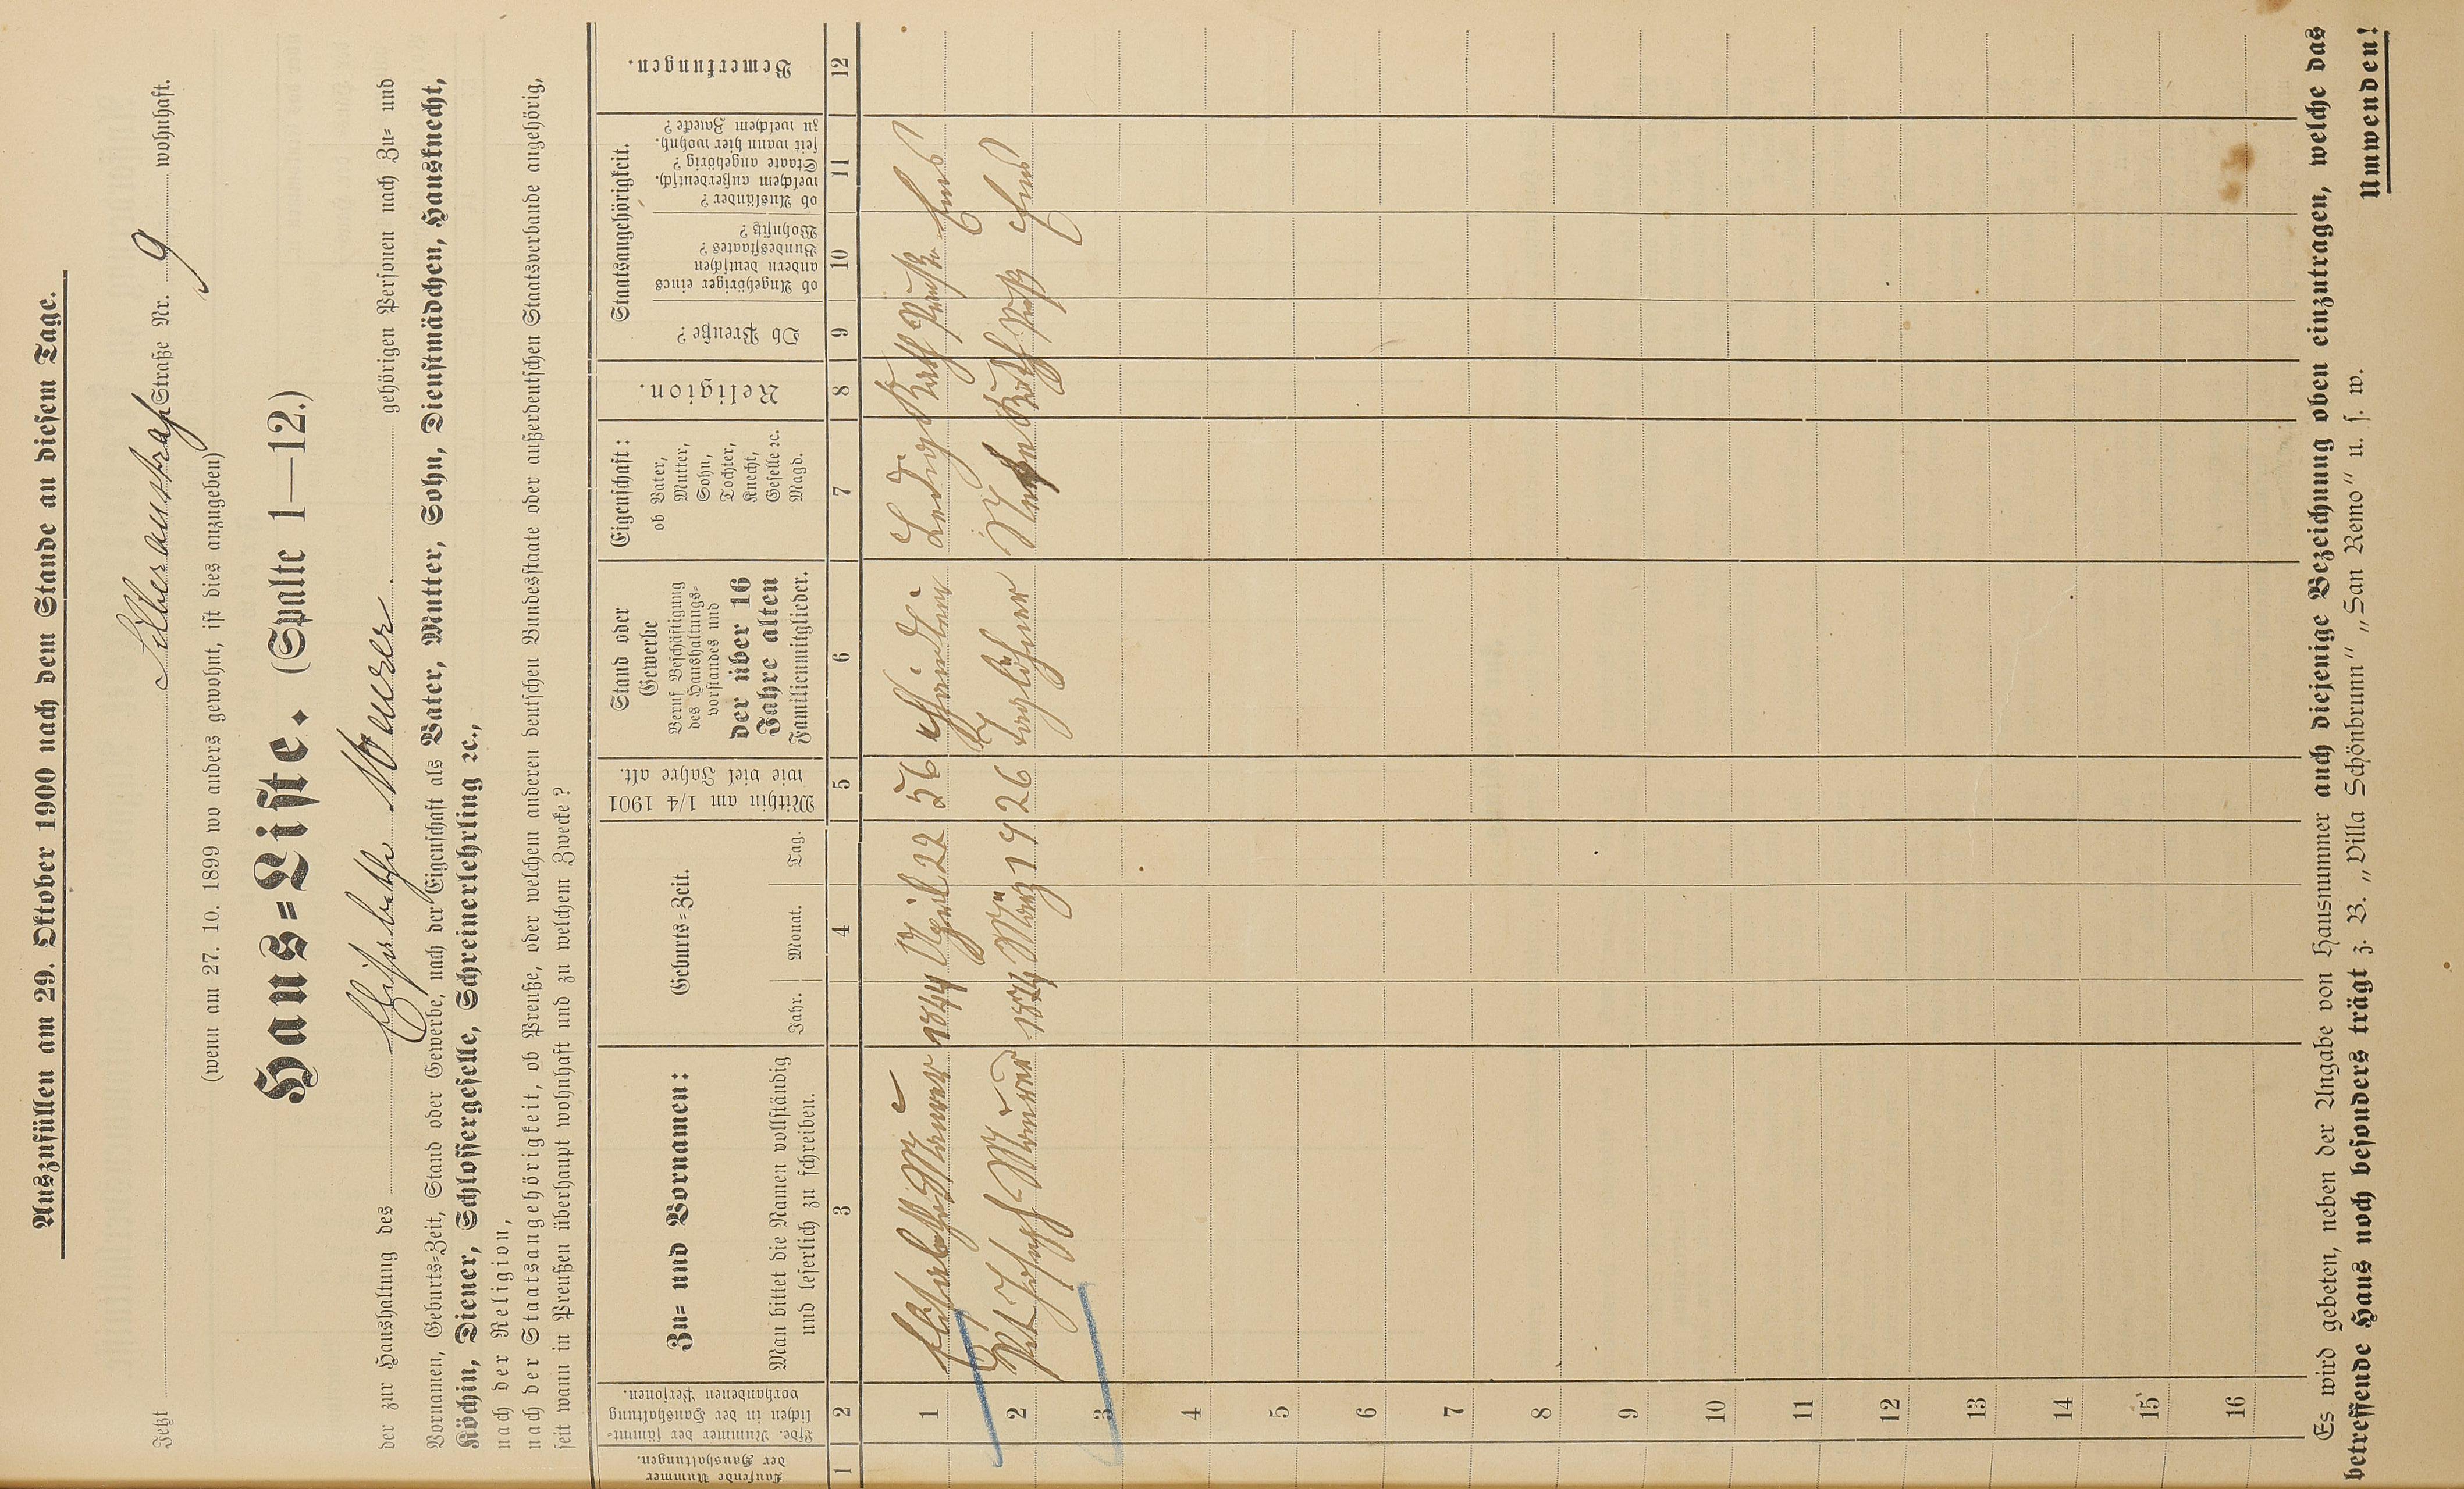 Auszufüllen am 29. Oktober 1900 nach dem Stande an diesem Tage.
Jetzt Silberaustraße Straße Nr. 9 wohnhaft.
(wenn am 27. 10. 1899 wo anders gewohnt, ist dies anzugeben)
Haus=Liste. (Spalte 1—12.)
der zur Haushaltung des Elisabethe Maurer gehörigen Personen nach Zu= und
Vornamen, Geburts=Zeit, Stand oder Gewerbe, nach der Eigenschaft als Vater, Mutter, Sohn, Dienstmädchen, Hausknecht,
Köchin, Diener, Schlossergeselle, Schreinerlehrling ꝛc.,
nach der Religion,
nach der Staatsangehörigkeit, ob Preuße, oder welchem anderen deutschen Bundesstaate oder außerdeutschen Staatsverbande angehörig,
seit wann in Preußen überhaupt wohnhaft und zu welchem Zwecke?
Laufende Nummer
der Haushaltungen.
Lfde. Nummer der sämmt=
lichen in der Haushaltung
vorhandenen Personen.
Zu= und Vornamen:
Man bittet die Namen vollständig
und leserlich zu schreiben.
Geburts=Zeit.
Jahr. Monat. Tag.
Mithin am 1/4 1901
wie viel Jahre alt.
Stand oder
Gewerbe
Beruf Beschäftigung
des Haushaltungs=
vorstandes und
der über 16
Jahre alten
Familienmitglieder.
Eigenschaft:
ob Vater,
Mutter,
Sohn,
Tochter,
Knecht,
Geselle ꝛc.
Magd.
Religion.
Staatsangehörigkeit.
Ob Preuße?
ob Angehöriger eines
andern deutschen
Bundesstaates?
Wohnsitz?
ob Ausländer?
welchem außerdeutsch.
Staate angehörig?
seit wann hier wohnh.
zu welchem Zwecke?
Bemerkungen.
1 2 3 4 5 6 7 8 9 10 11 12
1 Elisabethe Maurer 1844 April 22 56 Händlerin Ledig Kath Preuße Ems
2 Pet Joseph Maurer 1874 März 19 26 Taglöhner Neffe Kath Preuß Ems
3
4
5
6
7
8
9
10
11
12
13
14
15
16
Es wird gebeten, neben der Angabe von Hausnummer auch diejenige Bezeichnung oben einzutragen, welche das
betreffende Haus noch besonders trägt z. B. „Villa Schönbrunn" „San Remo" u. s. w.
Umwenden!